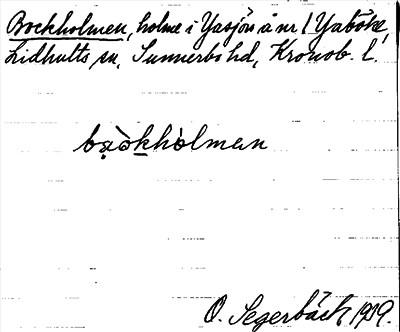 Bockholmen, holme i Yasjön å nr 1 Yaböke,
Lidhults sn, Sunnerbo hd, Kronob. l.
bạòkhòlmen
O. Segerbäck, 1939.